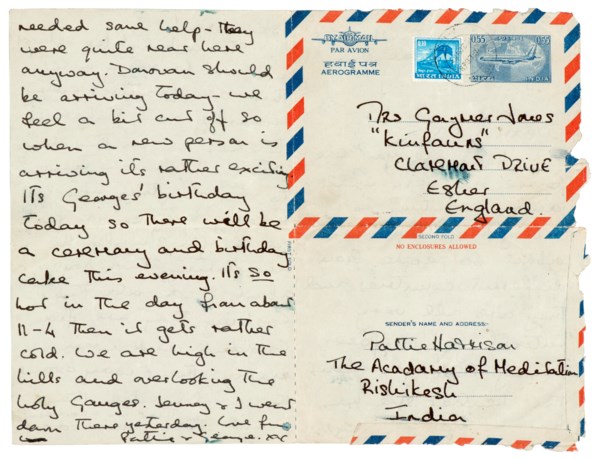 needed some help - they
were quite near here
anyway. Donovan should
be arriving today - we
feel a bit cut off so
when a new person is
arriving its rather exciting.
Its Georges' birthday
today so there will be
a ceremony and birthday
cake this evening. Its so
hot in the day from about
11-4 then it gets rather
cold. We are high in the
hills and overlooking the
holy Ganges. Jenny & I went
down there yesterday. Love from
Pattie & George. xx
BY AIR MAIL
PAR AVION
हवाई पत्र
AEROGRAMME
भारत INDIA
0.55
0.55
भारत
INDIA
Mrs Gaymer Jones
"Kinfauns"
CLAREMONT DRIVE
Esher
England.
SECOND FOLD
NO ENCLOSURES ALLOWED
SENDER'S NAME AND ADDRESS:-
Pattie Harrison
The Acadamy of Meditation
Rishikesh
India